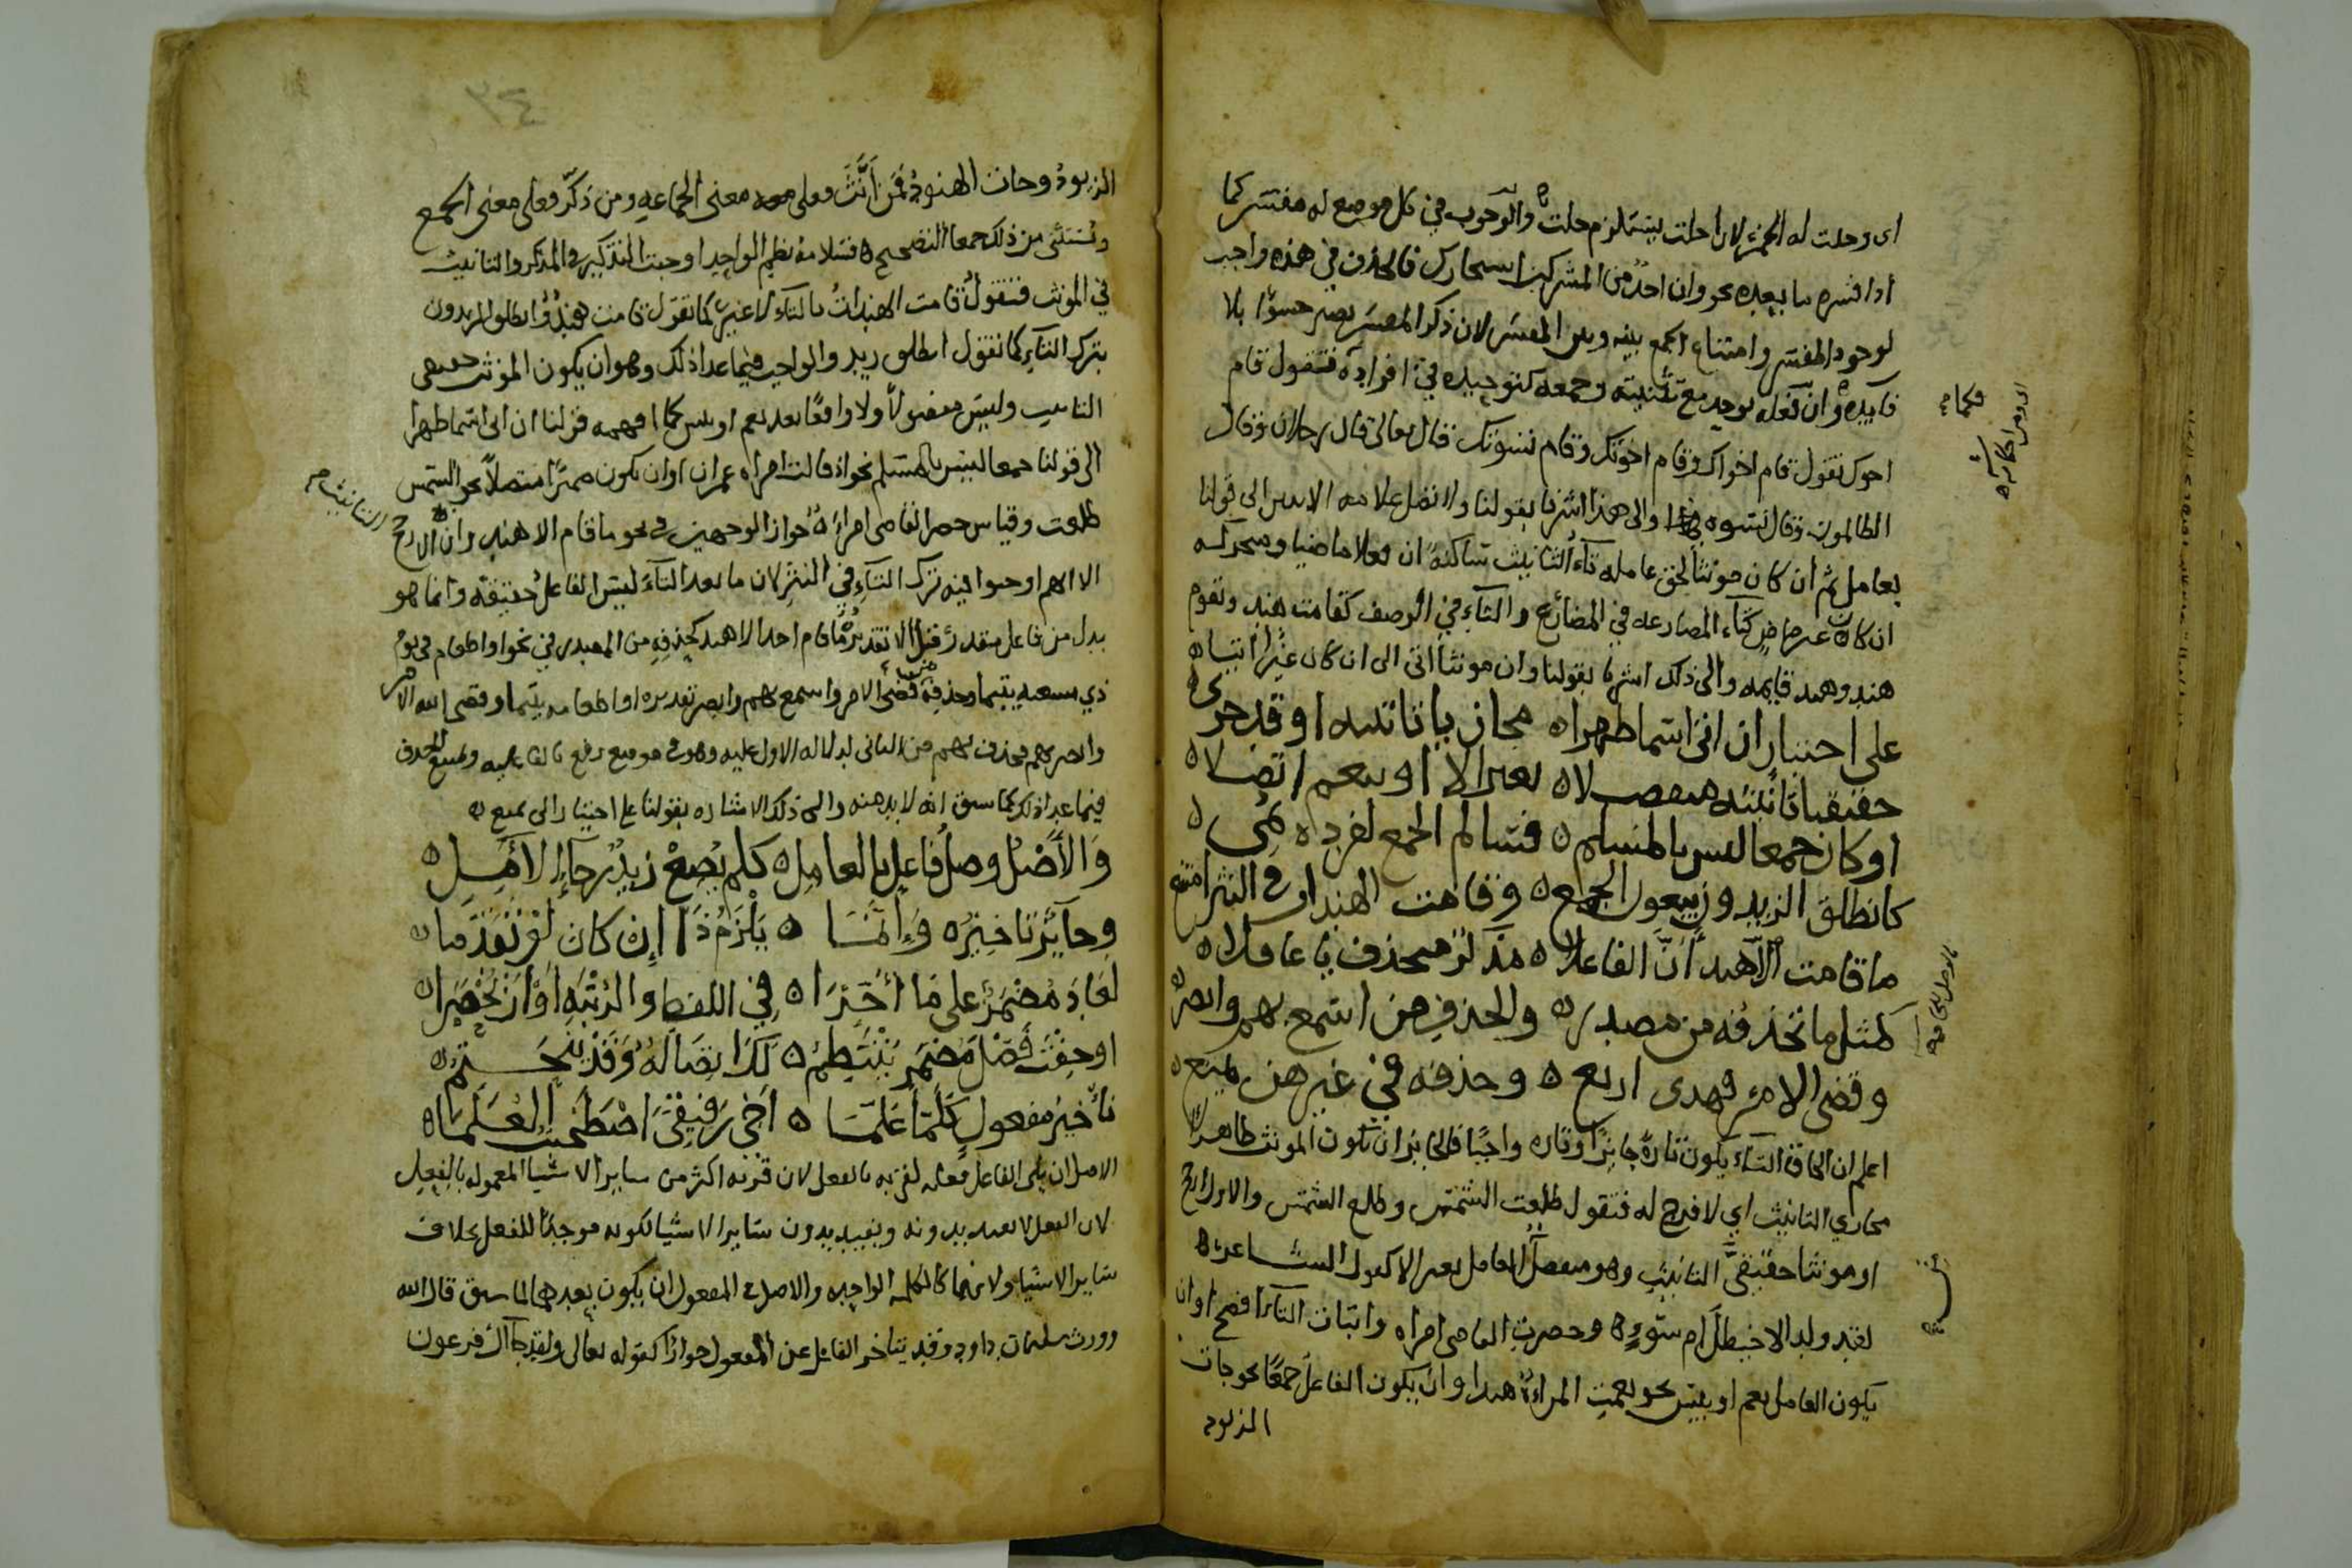 اى وحلت له الخمر لان احلت يستلزم حلت ه والوجوب في كل موضع له مفسر كما
اذا فسره ما بعده نحو وان احد من المشركين استجارك فالحذف في هذه واجب
لوجود المفسر وامتناع الجمع بينه وبين المفسر لان ذكر المفسر يصير حشوا بلا
فايده ه وان فعله يوحد مع تثنيته وجمعه كتوحيده في افراده فتقول قام
اخوك تقول قام اخواك وقام اخوتك وقام نسوتك قال تعالى قال رجلان وقال
الظالمون وقال نسوه والى هذا اشرنا بقولنا ولا تصل علامه الاسن الى قولنا
بعامل ثم ان كان مونثا لحق عامله تاء التانيث ساكنة ان فعلا ماضيا ومتحركه
ان كان غير ماض كتاء المضارعه في المضارع والتاء في الوصف كقامت هند وتقوم
هند وهند قايمه والى ذلك اشرنا بقولنا وان مونثا اتى الى ان كان غير اثبتا ه
على اختيار ان اتى اسما ظهرا ه مجازيا تانيثه او قد جرى ه
حقيقيا تانيثه منفصلا ه بغير الا او بنعم اتصلا ه
او كان جمعا ليس بالمسلم ه فسالم الجمع لفرده نمى ه
كانطلق الزيد وزيعول الجمع ه وقامت الهند او في النثر امتنع
ما قامت الا هند ان الفاعلا ه مذكر منحذف يا عاقلا ه
كمثل ما تحذفه من مصدر ه والحذف من اسمع بهم وابصر ه
وقضى الامر فهذى اربع ه وحذفه في غير هن يمنع ه
اعلم ان الحاق التاء يكون تارة جايزا وتاره واجبا فالجايز ان يكون المونث ظاهرا
مجازي التانيث اي لا فرج له فتقول طلعت الشمس وطلع الشمس والاول ارجح
او مونثا حقيقي التانيث وهو منفصل العامل بغير الا كقول الشاعر ه
لقد ولد الاخيطل ام سوء ه وحضرت القاضى امراه واثبات التاء افصح او ان
يكون العامل نعم او بئس نحو نعمت المراة هند او ان يكون الفاعل جمعا نحو جات
الزيود
٣٤
الزيود وجات الهنود فمن انث فعلى معنى الجماعه ومن ذكر فعلى معنى الجمع
ويستثنى من ذلك جمعا التصحيح ه فسلامة نظم الواحد اوجبت التذكير في المذكر والتانيث
في المونث فتقول قامت الهندات بالتاء لا غير كما تقول قامت هند وانطلق الزيدون
بترك التاء كما تقول انطلق زيد والواجب فيما عدا ذلك وهو ان يكون المونث حقيقى
التانيث وليس مفصولا ولا واقعا بعد نعم او بئس كما افهمه قولنا ان اتى اسما ظهرا
الى قولنا جمعا ليس بالمسلم نحو اذ قالت امراه عمران او ان يكون ضميرا متصلا نحو الشمس
طلعت وقياس حضر القاضى امراة جواز الوجهين في نحو ما قام الا هند وان الارجح التانيث
الا انهم اوجبوا فيه ترك التاء في النثر لان ما بعد التاء ليس الفاعل حقيقة وانما هو
بدل من فاعل مقدر قبل الا تقديره ما قام احد الا هند كحذفه من المصدر في نحو او اطعام في يوم
ذي مسغبه يتيما وحذفه في قضى الامر واسمع بهم وابصر تقديره او اطعامه يتيما وقضى الله الامر
وابصر بهم فحذف بهم من الثانى لدلاله الاول عليه وهو في موضع رفع بالفاعليه ويمتنع الحذف
فيما عدا ذلك كما سبق انه لا بد منه والى ذلك الاشاره بقولنا على اختيار الى يمنع ه
والاصل وصل فاعل بالعامل ه كلم يضع زيد رجاء الامل ه
وجايز تاخيره وانما ه يلزم ذا ان كان لو تقدما ه
لعاد مضمر على ما اخرا ه في اللفظ والرتبه او ان يحصرا ه
او خفت فصل مضمر ينتظم ه كذا اتصاله وقد ينحتم ه
تاخير مفعول كلما علما ه اخى رفيقى اصطحب العلما ه
الاصل ان يلى الفاعل فعله لقربه بالفعل لان قربه اكثر من ساير الاشيا المعموله بالفعل
لان الفعل لا يفيد بدونه ويفيد بدون ساير الاشيا لكونه موجدا للفعل بخلاف
ساير الاشيا ولانهما كالكلمه الواحده والاصل في المفعول ان يكون بعدهما لما سبق قال الله
وورث سليمان داود وقد يتاخر الفاعل عن المفعول جوازا كقوله تعالى ولقد جا آل فرعون